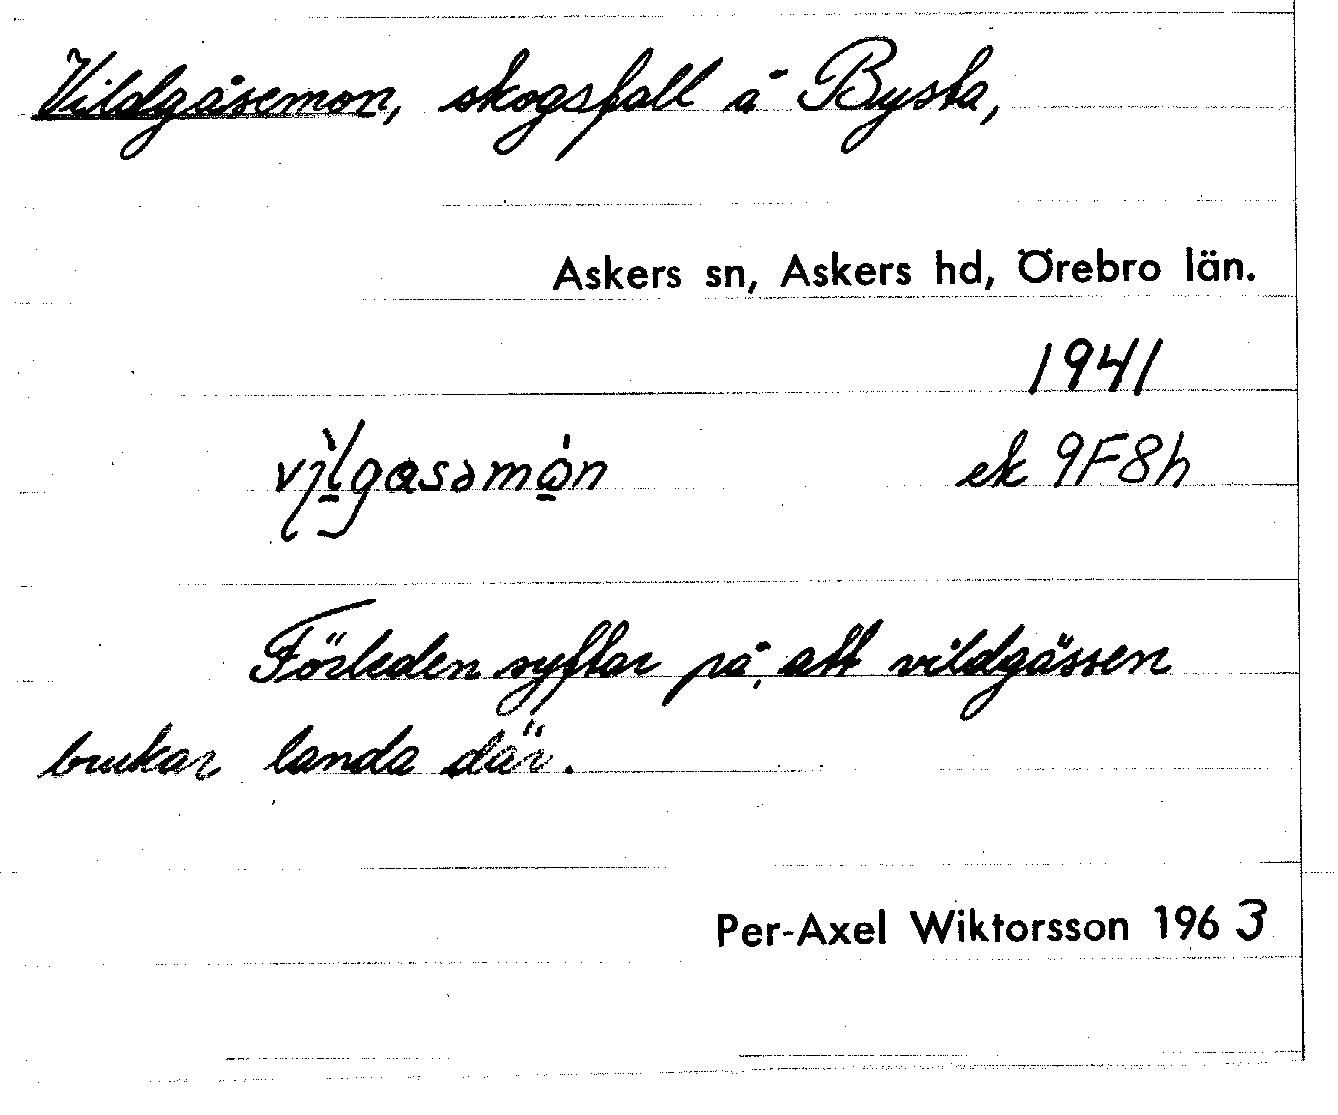 Vildgåsemon, skogsfall å Bysta,
Askers sn, Askers hd, Örebro län.
1941
ek 9F8h
Förleden syftar på, att vildgässen
brukar landa där.
Per-Axel Wiktorsson 1963